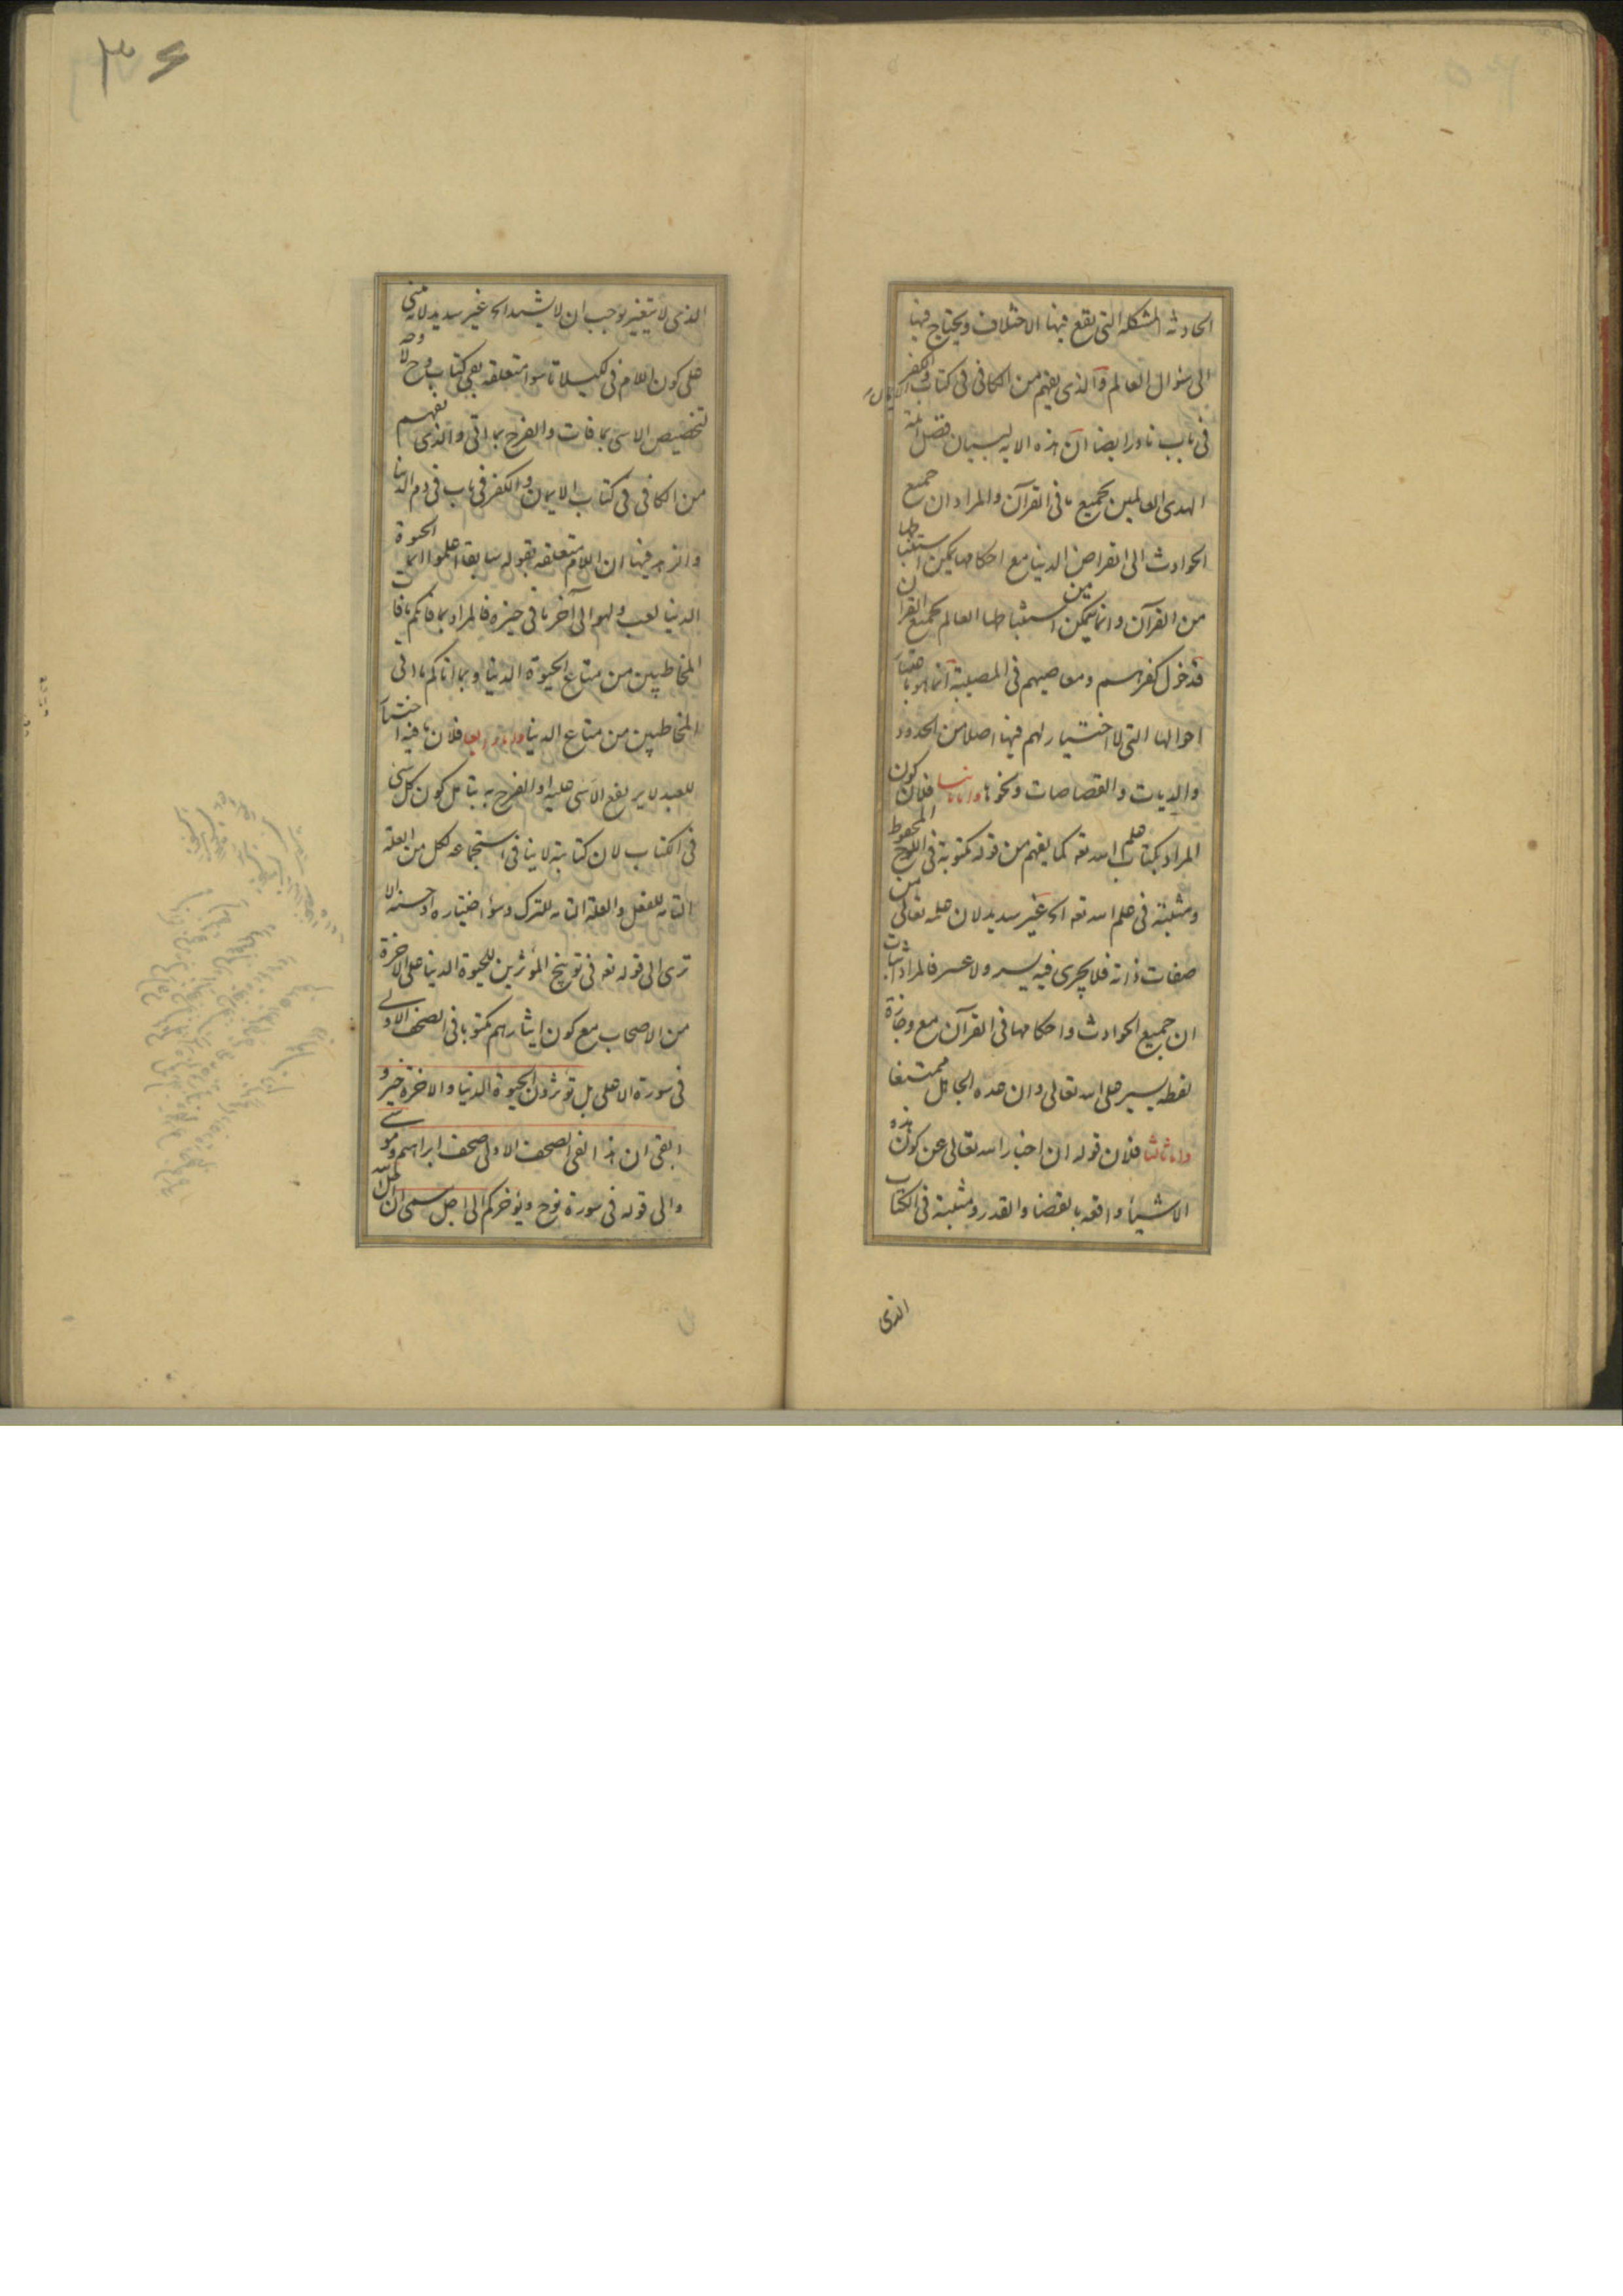 الحادثه المشكله التى يقع فيها الاختلاف ويحتاج فيها
الى سؤال العالم والذى يفهم من الكافى فى كتاب الكفر
فى باب نادر ايضا ان هذه الايه لبيان فضل ائمة
الهدى العالمين بجميع ما فى القرآن والمراد ان جميع
الحوادث الى انقراض الدنيا مع احكامها يمكن استنباطها
من القرآن وانما يمكن استنباطها العالم بجميع القران
فدخول كفرهم ومعاصيهم فى المصيبة انما هو باعتبار
احوالها التى لا اختيار لهم فيها اصلا من الحدود
والديات والقصاصات ونحوها واما ثانيا فلان كون
المراد بكتاب علم الله تعه كما يفهم من قوله مكتوبة فى اللوح المحفوظ
ومثبتة فى علم الله تعه الخ غير سديد لان علمه تعالى من
صفات ذاته فلا يجرى فيه يسر ولا عسر فالمراد اثبات
ان جميع الحوادث واحكامها فى القرآن مع وجازة
لفظه يسير على الله تعالى وان عده الجاهل ممتنعا
واما ثالثا فلان قوله ان اخبار الله تعالى عن كون هذه
الاشياء واقعه بالقضا والقدر ومثبتة فى الكتاب
الذى
۳۶
الذى لا يتغير يوجب ان لا يشتد الخ غير سديد لانه مبنى
على كون اللام فى لكيلا تاسوا متعلقه بفى كتاب وح لا وجه
لتخصيص الاسى بما فات والفرح بما اتى والذى يفهم
من الكافى فى كتاب الايمان والكفر فى باب فى ذم الدنيا
والزهد فيها ان اللام متعلقه بقوله سابقا اعلموا انما الحيوة
الدنيا لعب ولهو الى آخر ما فى حيزه فالمراد بما فاتكم ما فات
المخاطبين من متاع الحيوة الدنيا وبما اتاكم ما اتى
المخاطبين من متاع الدنيا واما رابعا فلان ما فيه اختيار
للعبد لا يرتفع الاسى عليه او الفرح به بتامل كون كل شى
فى الكتاب لان كتابته لا ينافى استجماعه لكل من العلة
التامه للفعل والعلة التامه للترك وسوء اختياره او حسنه الا
ترى الى قوله تعه فى توبيخ المؤثرين للحيوة الدنيا على الاخرة
من الاصحاب مع كون ايثارهم مكتوبا فى الصحف الاولى
فى سورة الاعلى بل تؤثرون الحيوة الدنيا والاخرة خير و
ابقى ان هذا لفى الصحف الاولى صحف ابراهيم وموسى
والى قوله فى سورة نوح ويؤخركم الى اجل مسمى ان اجل الله